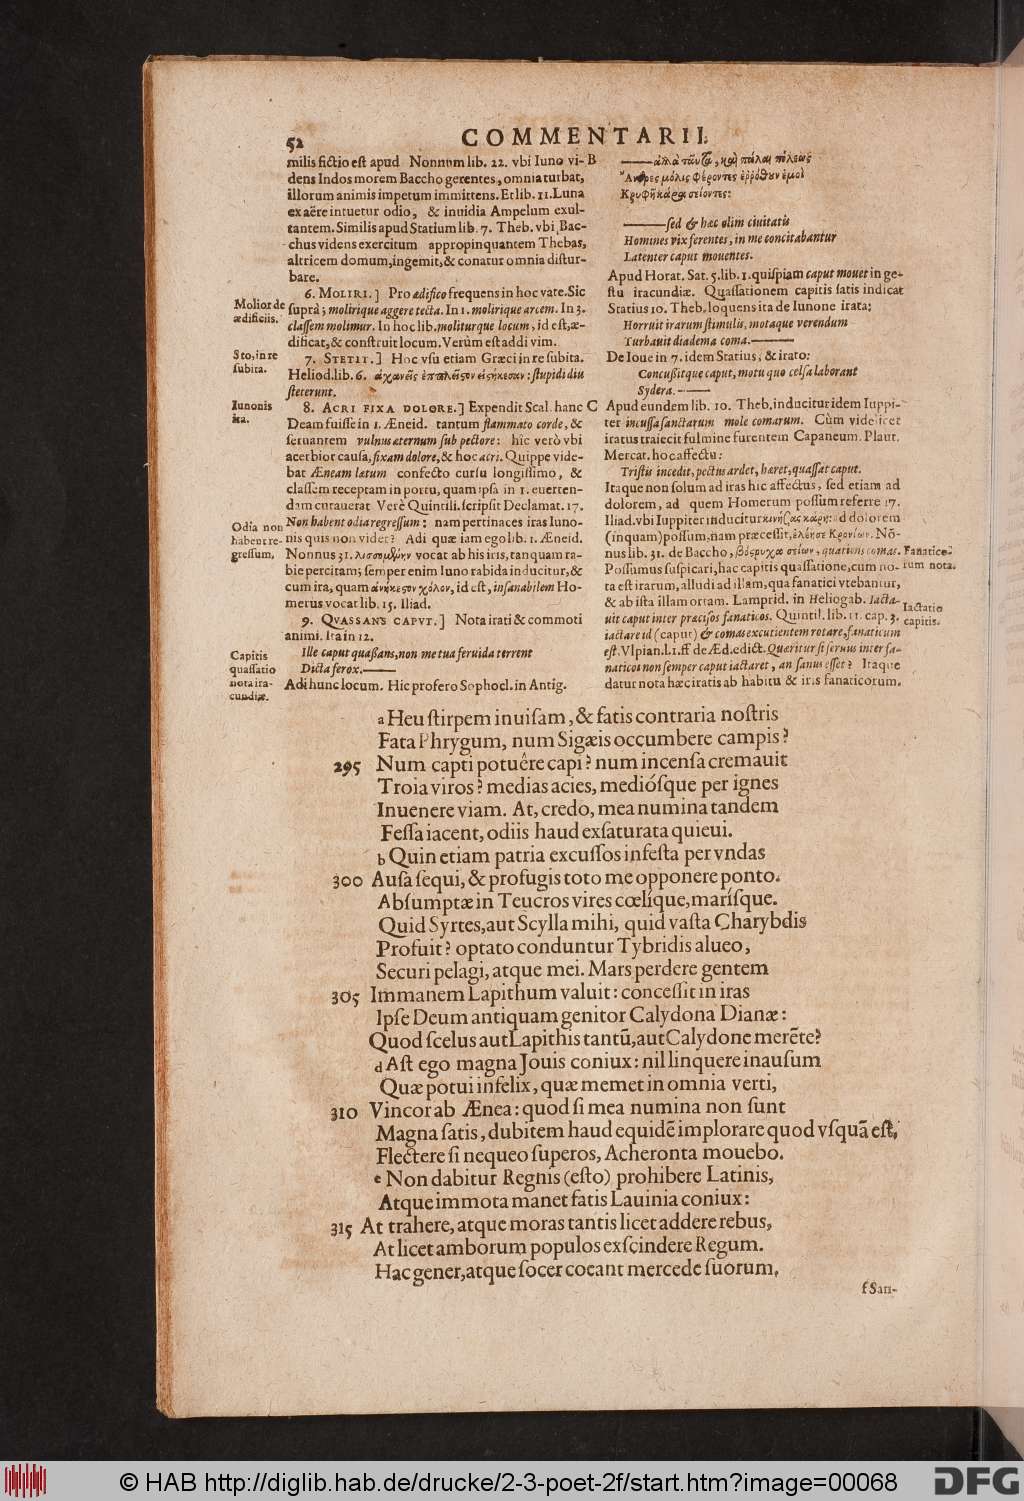 52
COMMENTARII.
milis fictio est apud Nonnum lib. 22. vbi Iuno vi-
dens Indos morem Baccho gerentes, omnia turbat,
illorum animis impetum immittens. Et lib. 11. Luna
ex aëre intuetur odio, & inuidia Ampelum exul-
tantem. Similis apud Statium lib. 7. Theb. vbi Bac-
chus videns exercitum appropinquantem Thebas,
altricem domum, ingemit, & conatur omnia distur-
bare.
6. MOLIRI.] Pro ædifico frequens in hoc vate. Sic
Molior de
ædificiis.
suprà; molirique aggere tecta. In 1. molirique arcem. In 3.
classem molimur. In hoc lib. moliturque locum, id est, æ-
dificat, & construit locum. Verùm est addi vim.
Sto, in re
subita.
7. STETIT.] Hoc vsu etiam Græci in re subita.
Heliod. lib. 6. : stupidi diu
steterunt.
Iunonis
ira.
8. ACRI FIXA DOLORE.] Expendit Scal. hanc
Deam fuisse in 1. Æneid. tantum flammato corde, &
seruantem vulnus æternum sub pectore: hic verò vbi
acerbior causa, fixam dolore, & hoc acri. Quippe vide-
bat Æneam lætum confecto cursu longissimo, &
classem receptam in portu, quam ipsa in 1. euerten-
dam curauerat. Verè Quintili. scripsit Declamat. 17.
Odia non
habent re-
gressum.
Non habent odia regressum: nam pertinaces iras Iuno-
nis quis non videt? Adi quæ iam ego lib. 1. Æneid.
Nonnus 31. vocat ab his iris, tanquam ra-
bie percitam; semper enim Iuno rabida inducitur, &
cum ira, quam ἀνήκεστον χόλον, id est, insanabilem Ho-
merus vocat lib. 15. Iliad.
9. QVASSANS CAPVT.] Nota irati & commoti
animi. Ita in 12.
Capitis
quassatio
nota ira-
cundiæ.
Ille caput quaßans, non me tua feruida terrent
Dicta ferox.——
Ad hunc locum. Hic profero Sophocl. in Antig.
B
——ἀλλὰ ταῦτα, καὶ πάλαι πόλεως
Ἄνδρες μόλις φέροντες ἐρρόθουν ἐμοὶ
Κρυφῆ κάρα σείοντες:
——sed & hæc olim ciuitatis
Homines vix ferentes, in me concitabantur
Latenter caput mouentes.
Apud Horat. Sat. 5. lib. 1. quispiam caput mouet in ge-
stu iracundiæ. Quassationem capitis satis indicat
Statius 10. Theb. loquens ita de Iunone irata;
Horruit irarum stimulis, motaque verendum
Turbauit diadema coma.——
De Ioue in 7. idem Statius, & irato:
Concußitque caput, motu quo celsa laborant
Sydera.——
C
Apud eundem lib. 10. Theb. inducitur idem Iuppi-
ter incussa sanctarum mole comarum. Cùm videlicet
iratus traiecit fulmine furentem Capaneum. Plaut.
Mercat. hoc affectu:
Tristis incedit, pectus ardet, hæret, quassat caput.
Itaque non solum ad iras hic affectus, sed etiam ad
dolorem, ad quem Homerum possum referre 17.
Iliad. vbi Iuppiter inducitur κινήσας κάρη: ad dolorem
(inquam) possum, nam præcessit, ἐλέησε Κρονίων. Nõ-
nus lib. 31. de Baccho, βόστρυχα σείων, quatiens comas.
Fanatico-
rum nota.
Possumus suspicari, hac capitis quassatione, cum no-
ta est irarum, alludi ad illam, qua fanatici vtebantur,
& ab ista illam ortam. Lamprid. in Heliogab. Iacta-
Iactatio
capitis.
uit caput inter præcisos fanaticos. Quintil. lib. 11. cap. 3.
iactare id (caput) & comas excutientem rotare, fanaticum
est. Vlpian. l. 1. ff de Æd. edict. Quæritur si seruus inter fa-
naticos non semper caput iactaret, an sanus esset? Itaque
datur nota hæc iratis ab habitu & iris fanaticorum.
a Heu stirpem inuisam, & fatis contraria nostris
Fata Phrygum, num Sigæis occumbere campis?
295 Num capti potuêre capi? num incensa cremauit
Troia viros? medias acies, mediósque per ignes
Inuenere viam. At, credo, mea numina tandem
Fessa iacent, odiis haud exsaturata quieui.
b Quin etiam patria excussos infesta per vndas
300 Ausa sequi, & profugis toto me opponere ponto.
Absumptæ in Teucros vires cœlíque, marísque.
Quid Syrtes, aut Scylla mihi, quid vasta Charybdis
Profuit? optato conduntur Tybridis alueo,
Securi pelagi, atque mei. Mars perdere gentem
305 Immanem Lapithum valuit: concessit in iras
Ipse Deum antiquam genitor Calydona Dianæ:
Quod scelus aut Lapithis tantũ, aut Calydone merẽte?
d Ast ego magna Jouis coniux: nil linquere inausum
Quæ potui infelix, quæ memet in omnia verti,
310 Vincor ab Ænea: quod si mea numina non sunt
Magna satis, dubitem haud equidẽ implorare quod vsquã est,
Flectere si nequeo superos, Acheronta mouebo.
e Non dabitur Regnis (esto) prohibere Latinis,
Atque immota manet fatis Lauinia coniux:
315 At trahere, atque moras tantis licet addere rebus,
At licet amborum populos exscindere Regum.
Hac gener, atque socer coeant mercede suorum,
f San-
© HAB http://diglib.hab.de/drucke/2-3-poet-2f/start.htm?image=00068
DFG